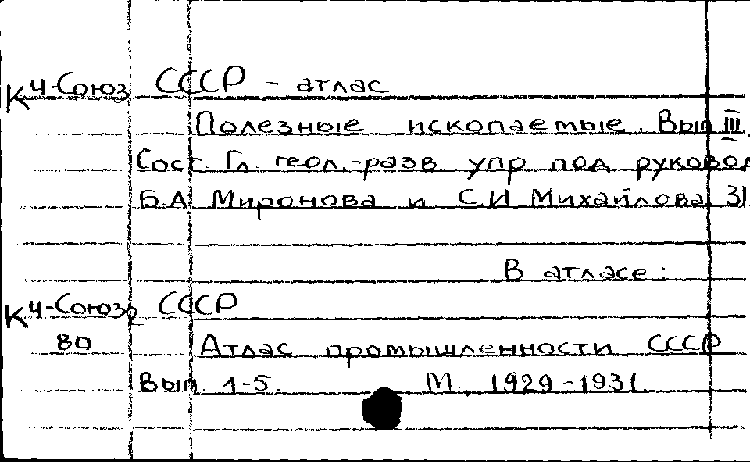 К Ч-Союз СССР - атлас
Полезные ископаемые. Вып III.
Сост. Гл. геол.-разв упр под руковод
Б.А Миронова и С.И Михайлова 31
В атласе:
К Ч-Союз СССР
80 Атлас промышленности СССР
Вып. 1-5. М. 1929-1931.